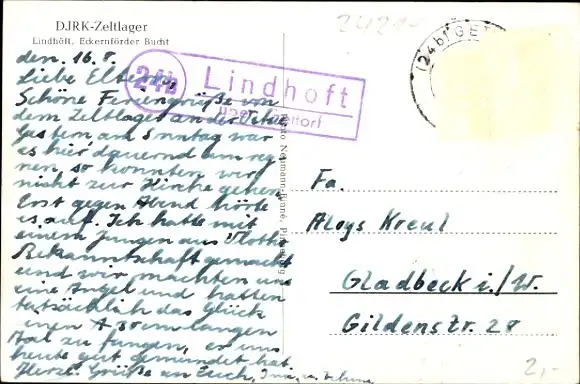 DJRK-Zeltlager
Lindhöft, Eckernförder Bucht
den. 16. 8.
Liebe Eltern,
Schöne Feriengrüße von
dem Zeltlager an der
Gestern, am Sonntag war
es hier dauernd am reg-
nen, so konnten wir
nicht zur Kirche gehen.
Erst gegen Abend hörte
es auf. Ich hatte mit
einem Jungen aus Vlotho
Bekanntschaft gemacht
und wir machten uns
eine Angel und hatten
tatsächlich das Glück
einen langen
Aal zu fangen, er uns
heute gut gemundet hat.
Herzl. Grüße an Euch,
24b
Lindhoft
(24b) GET
Fa.
Aloys Kreul
Gladbeck i./W.
Gildenstr. 28
2,-